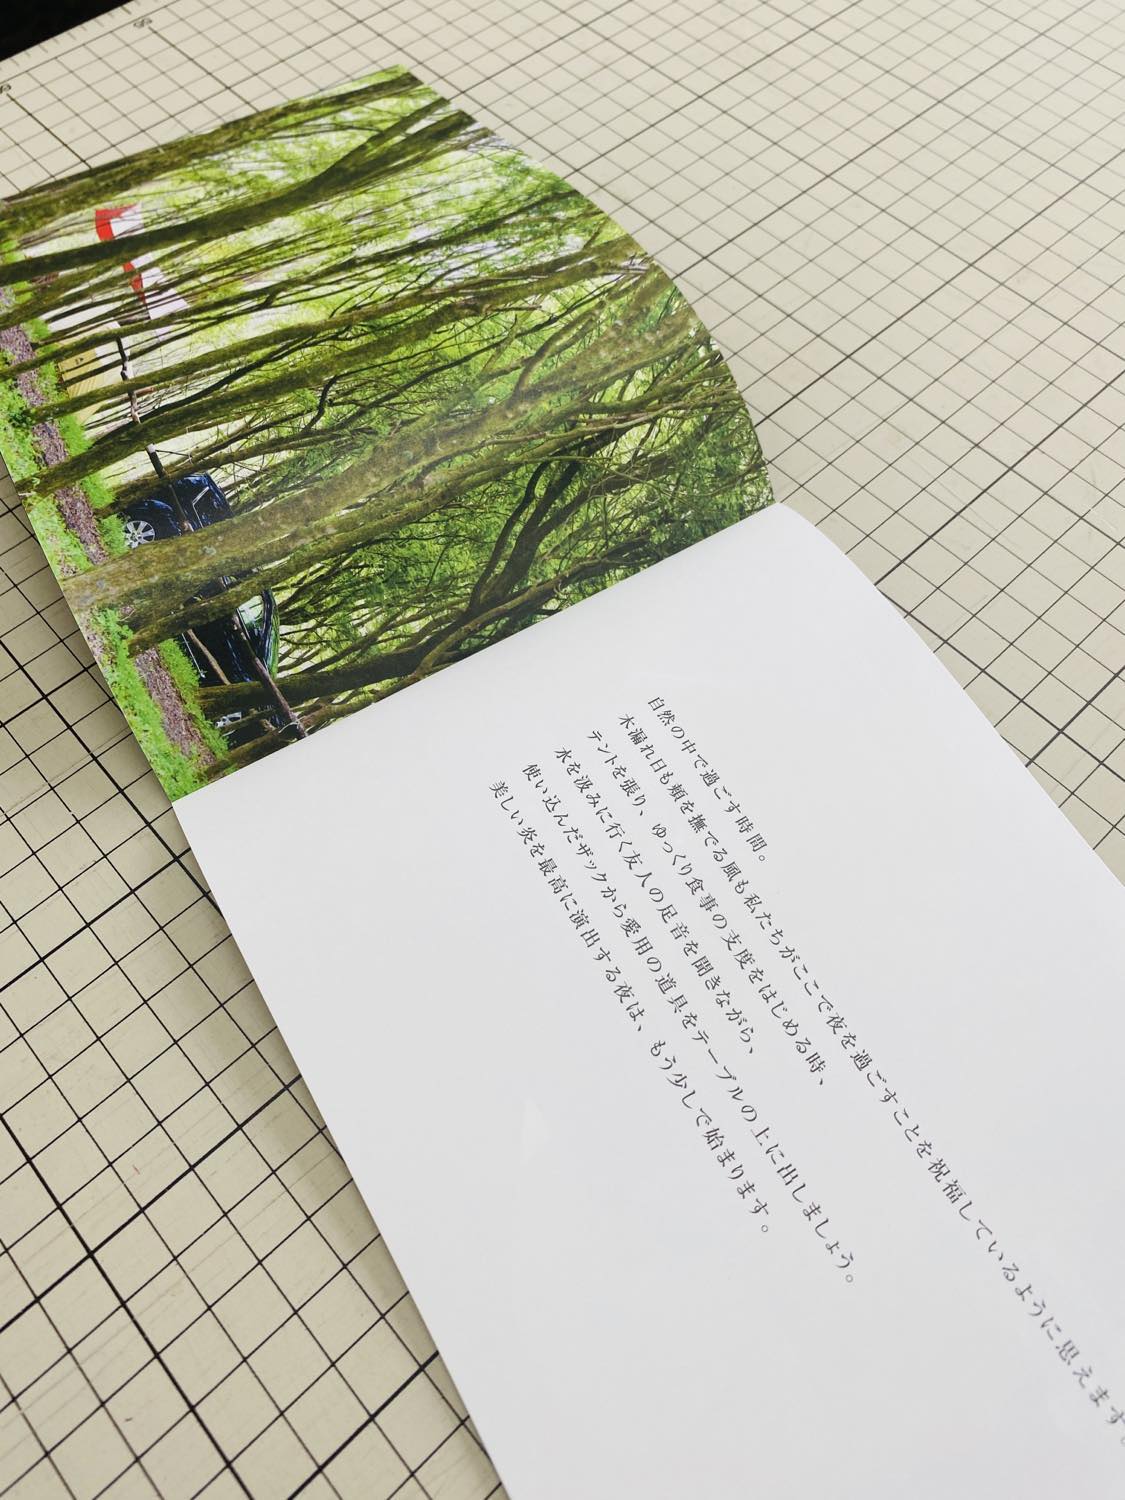 自然の中で過ごす時間。
木漏れ日も頬を撫でる風も私たちがここで夜を過ごすことを祝福しているように思えます。
テントを張り、ゆっくり食事の支度をはじめる時、
水を汲みに行く友人の足音を聞きながら、
使い込んだザックから愛用の道具をテーブルの上に出しましょう。
美しい炎を最高に演出する夜は、もう少しで始まります。